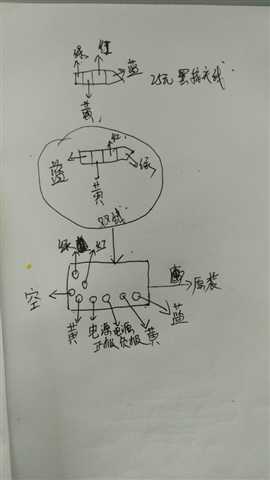 绿 红
蓝
25元黑接衣线
黄
红
蓝 绿
黄
双线
绿 蓝 红
原装
空
蓝
黄 电源正极 电源负极 黄